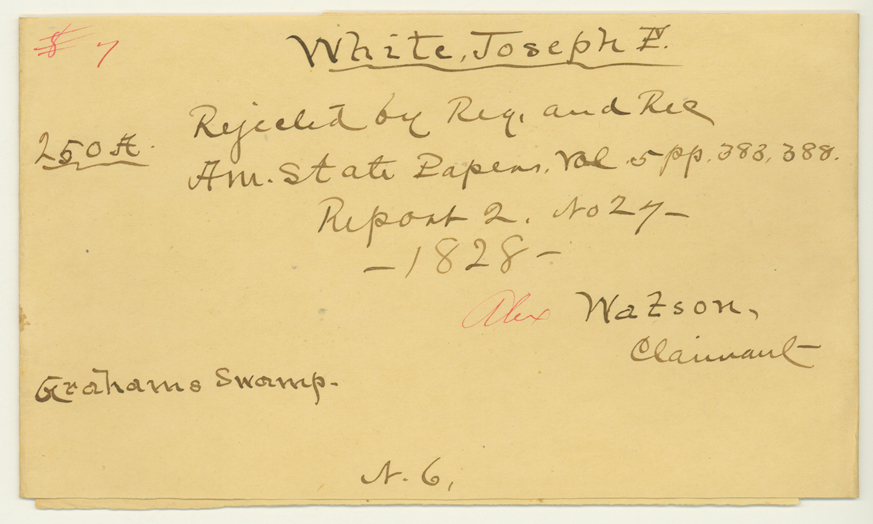 8 7
White, Joseph E.
Rejected by Reg. and Rec
250 A.
Am. State Papers, Vol. 5 pp. 383, 388.
Report 2. No 27 –
– 1828 –
Alex Watson,
Claimant
Grahams Swamp.
N. 6,